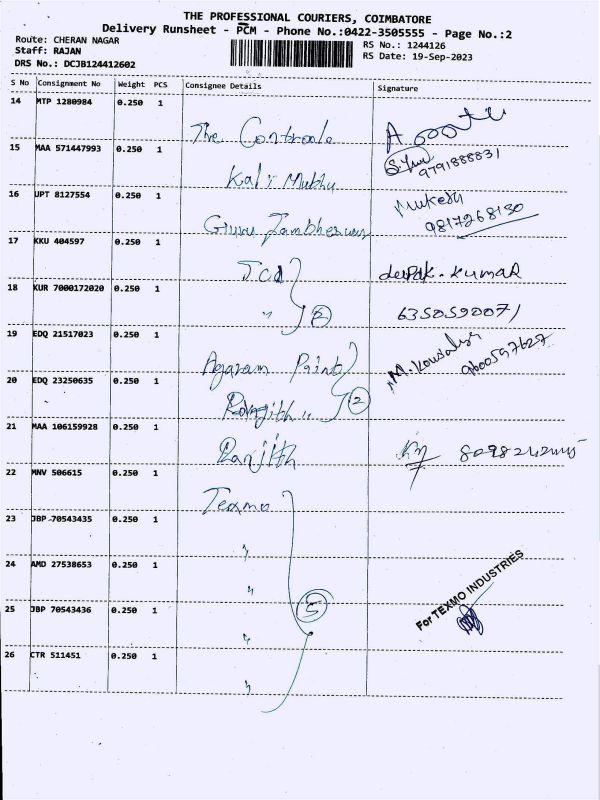 THE PROFESSIONAL COURIERS, COIMBATORE
Delivery Runsheet - PCM - Phone No.:0422-3505555 - Page No.:2
Route: CHERAN NAGAR
Staff: RAJAN
DRS No.: DCJB124412602
RS No.: 1244126
RS Date: 19-Sep-2023
S No Consignment No Weight PCS Consignee Details Signature
14 MTP 1280984 0.250 1 The
15 MAA 571447993 0.250 1 Kali Muthu 9791888831
16 UPT 8127554 0.250 1 Guru Mukesh 9817268130
17 KKU 404597 0.250 1 deepak. Kumar
18 KUR 7000172020 0.250 1 " 2 6350590071
19 EDQ 21517023 0.250 1 Agaram Paints M. Kowsalya 9600597627
20 EDQ 23250635 0.250 1 " 2
21 MAA 106159928 0.250 1 Ranjith
22 MNV 506615 0.250 1 Texmo
23 JBP 70543435 0.250 1 "
24 AMD 27538653 0.250 1 "
25 JBP 70543436 0.250 1 5 "
26 CTR 511451 0.250 1 "
For TEXMO INDUSTRIES